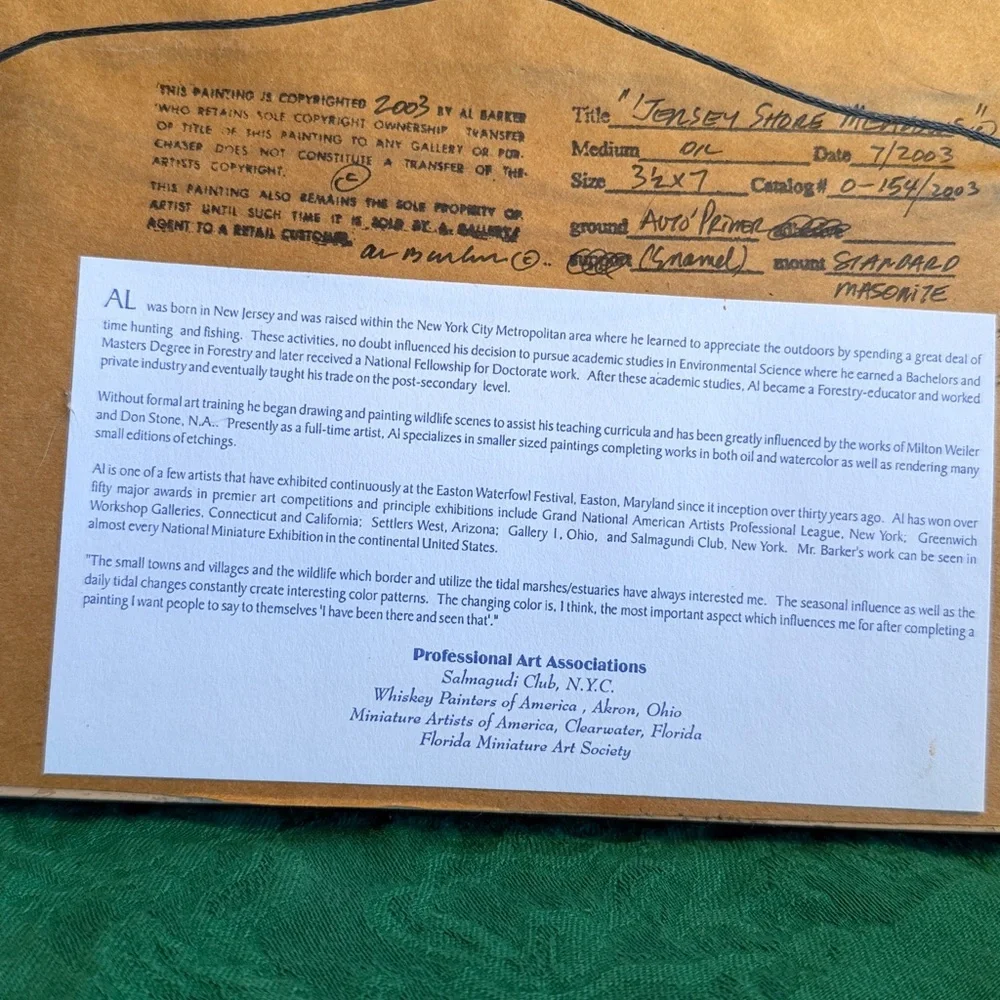 "THIS PAINTING IS COPYRIGHTED 2003 BY AL BARKER
WHO RETAINS SOLE COPYRIGHT OWNERSHIP TRANSFER
OF TITLE OF THIS PAINTING TO ANY GALLERY OR PUR-
CHASER DOES NOT CONSTITUTE A TRANSFER OF THE
ARTISTS COPYRIGHT. ©
THIS PAINTING ALSO REMAINS THE SOLE PROPERTY OF
ARTIST UNTIL SUCH TIME IT IS SOLD BY A GALLERY
AGENT TO A RETAIL CUSTOMER.
Al Barker ©..
Title "JERSEY SHORE MEADOWS"
Medium OIL Date 7/2003
Size 3½x7 Catalog# O-154/2003
ground AUTO' PRIMER
support (Enamel) mount STANDARD
MASONITE
AL was born in New Jersey and was raised within the New York City Metropolitan area where he learned to appreciate the outdoors by spending a great deal of
time hunting and fishing. These activities, no doubt influenced his decision to pursue academic studies in Environmental Science where he earned a Bachelors and
Masters Degree in Forestry and later received a National Fellowship for Doctorate work. After these academic studies, Al became a Forestry-educator and worked
private industry and eventually taught his trade on the post-secondary level.
Without formal art training he began drawing and painting wildlife scenes to assist his teaching curricula and has been greatly influenced by the works of Milton Weiler
and Don Stone, N.A.. Presently as a full-time artist, Al specializes in smaller sized paintings completing works in both oil and watercolor as well as rendering many
small editions of etchings.
Al is one of a few artists that have exhibited continuously at the Easton Waterfowl Festival, Easton, Maryland since it inception over thirty years ago. Al has won over
fifty major awards in premier art competitions and principle exhibitions include Grand National American Artists Professional League, New York; Greenwich
Workshop Galleries, Connecticut and California; Settlers West, Arizona; Gallery 1, Ohio, and Salmagundi Club, New York. Mr. Barker's work can be seen in
almost every National Miniature Exhibition in the continental United States.
"The small towns and villages and the wildlife which border and utilize the tidal marshes/estuaries have always interested me. The seasonal influence as well as the
daily tidal changes constantly create interesting color patterns. The changing color is, I think, the most important aspect which influences me for after completing a
painting I want people to say to themselves 'I have been there and seen that'."
Professional Art Associations
Salmagudi Club, N.Y.C.
Whiskey Painters of America , Akron, Ohio
Miniature Artists of America, Clearwater, Florida
Florida Miniature Art Society